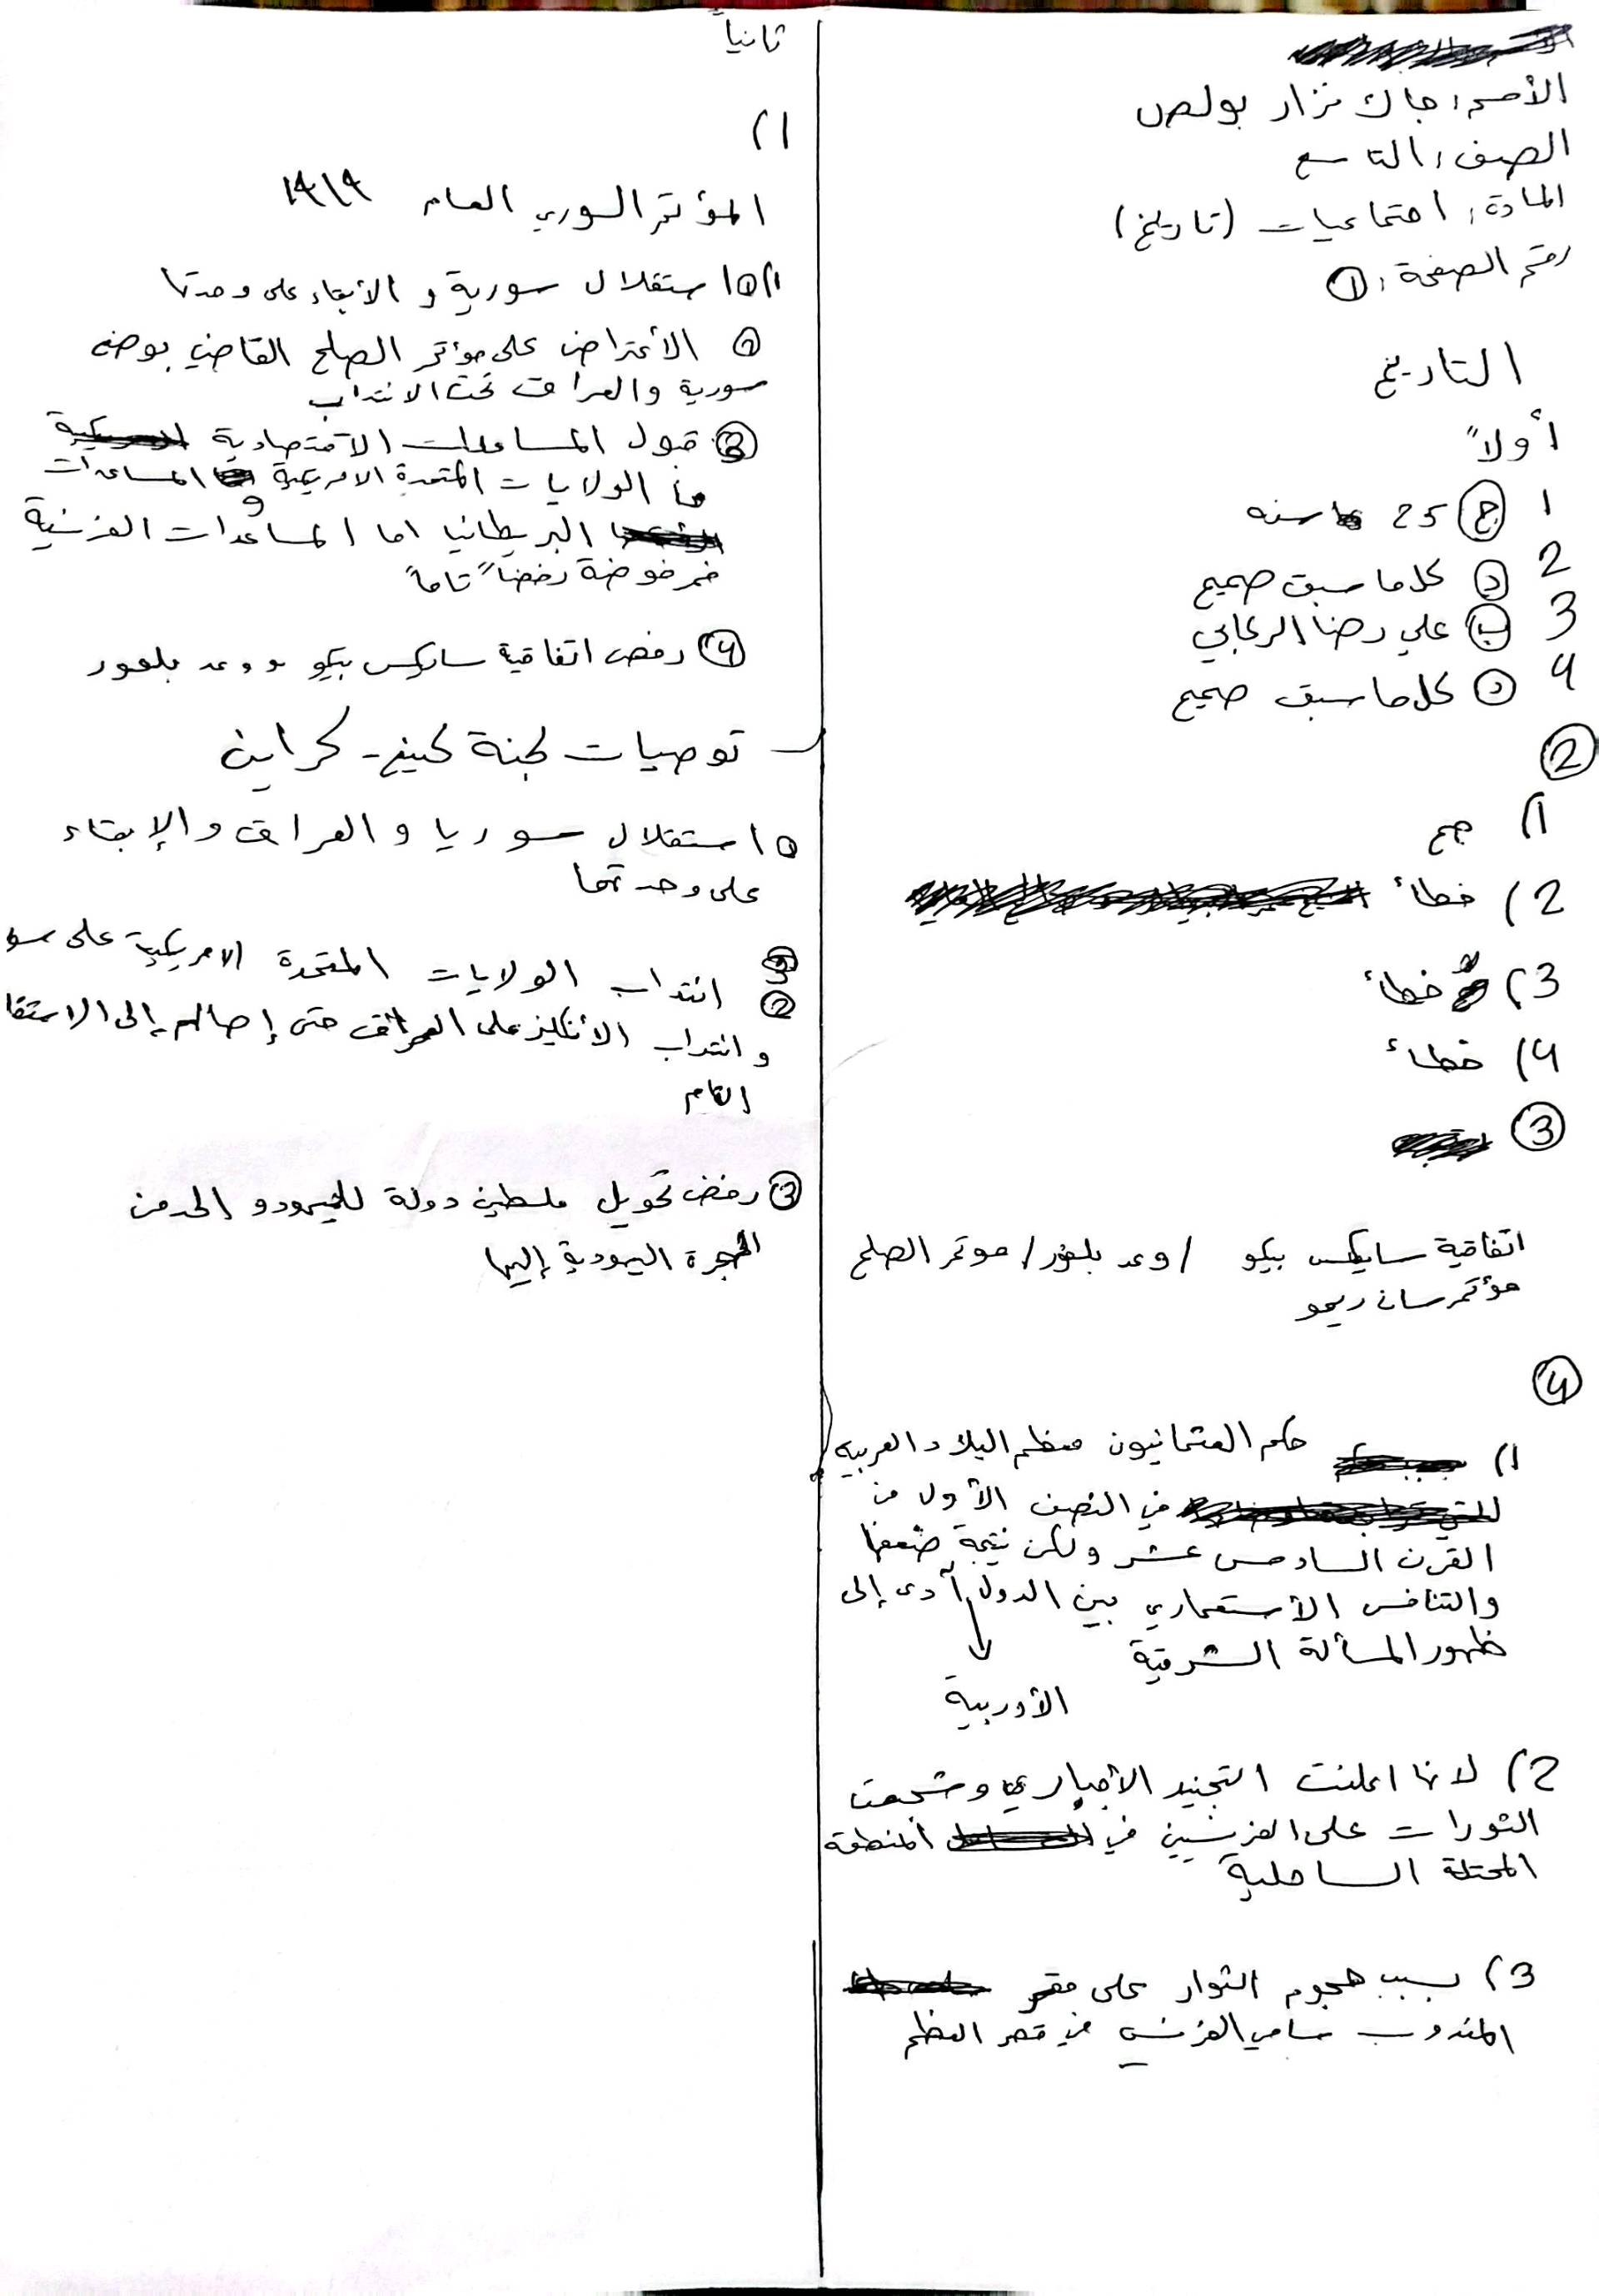 الأسم: جاك نزار بولص
الصف: التاسع
المادة: اجتماعيات (تاريخ)
رقم الصفحة: 1
التاريخ
أولاً
1 ج 25 سنه
2 د كل ما سبق صحيح
3 ب علي رضا الركابي
4 د كل ما سبق صحيح
2
1) صح
2) خطأ
3) خطأ
4) خطأ
3
اتفاقية سايكس بيكو / وعد بلفور / موتمر الصلح
مؤتمر سان ريمو
4
1) حكم العثمانيون معظم البلاد العربيه
في النصف الأول من
القرن السادس عشر ولكن نتيجة ضعفها
والتنافس الأستعماري بين الدول أدى إلى
ظهور المسألة الشرقية
الأوربية
2) لانها اعلنت التجنيد الأجباري وشجعت
الثورات على الفرنسيين في المنطقة
المحتلة الساحلية
3) بسبب هجوم الثوار على مقر
المندوب سامي الفرنسي في قصر العظم
ثانياً
1)
المؤتمر السوري العام ١٩١٩
1) 1 استقلال سورية و الأبقاء على وحدتها
2 الأعتراض على مؤتمر الصلح القاضي بوضع
سورية والعراق تحت الانتداب
3 قبول المساعدات الاقتصادية
من الولايات المتحدة الامريكية المساعدات
و البريطانيا اما المساعدات الفرنسية
فمرفوضة رفضاً تاماً
4 رفض اتفاقية سايكس بيكو و وعد بلفور
- توصيات لجنة كينغ - كراين
1 استقلال سوريا و العراق و الإبقاء
على وحدتهما
2 انتداب الولايات المتحدة الامريكية على سو
و انتداب الأنكليز على العراق حتى إصالهم إلى الاستقا
التام
3 رفض تحويل فلسطين دولة لليهود و الحد من
الهجرة اليهودية إليها